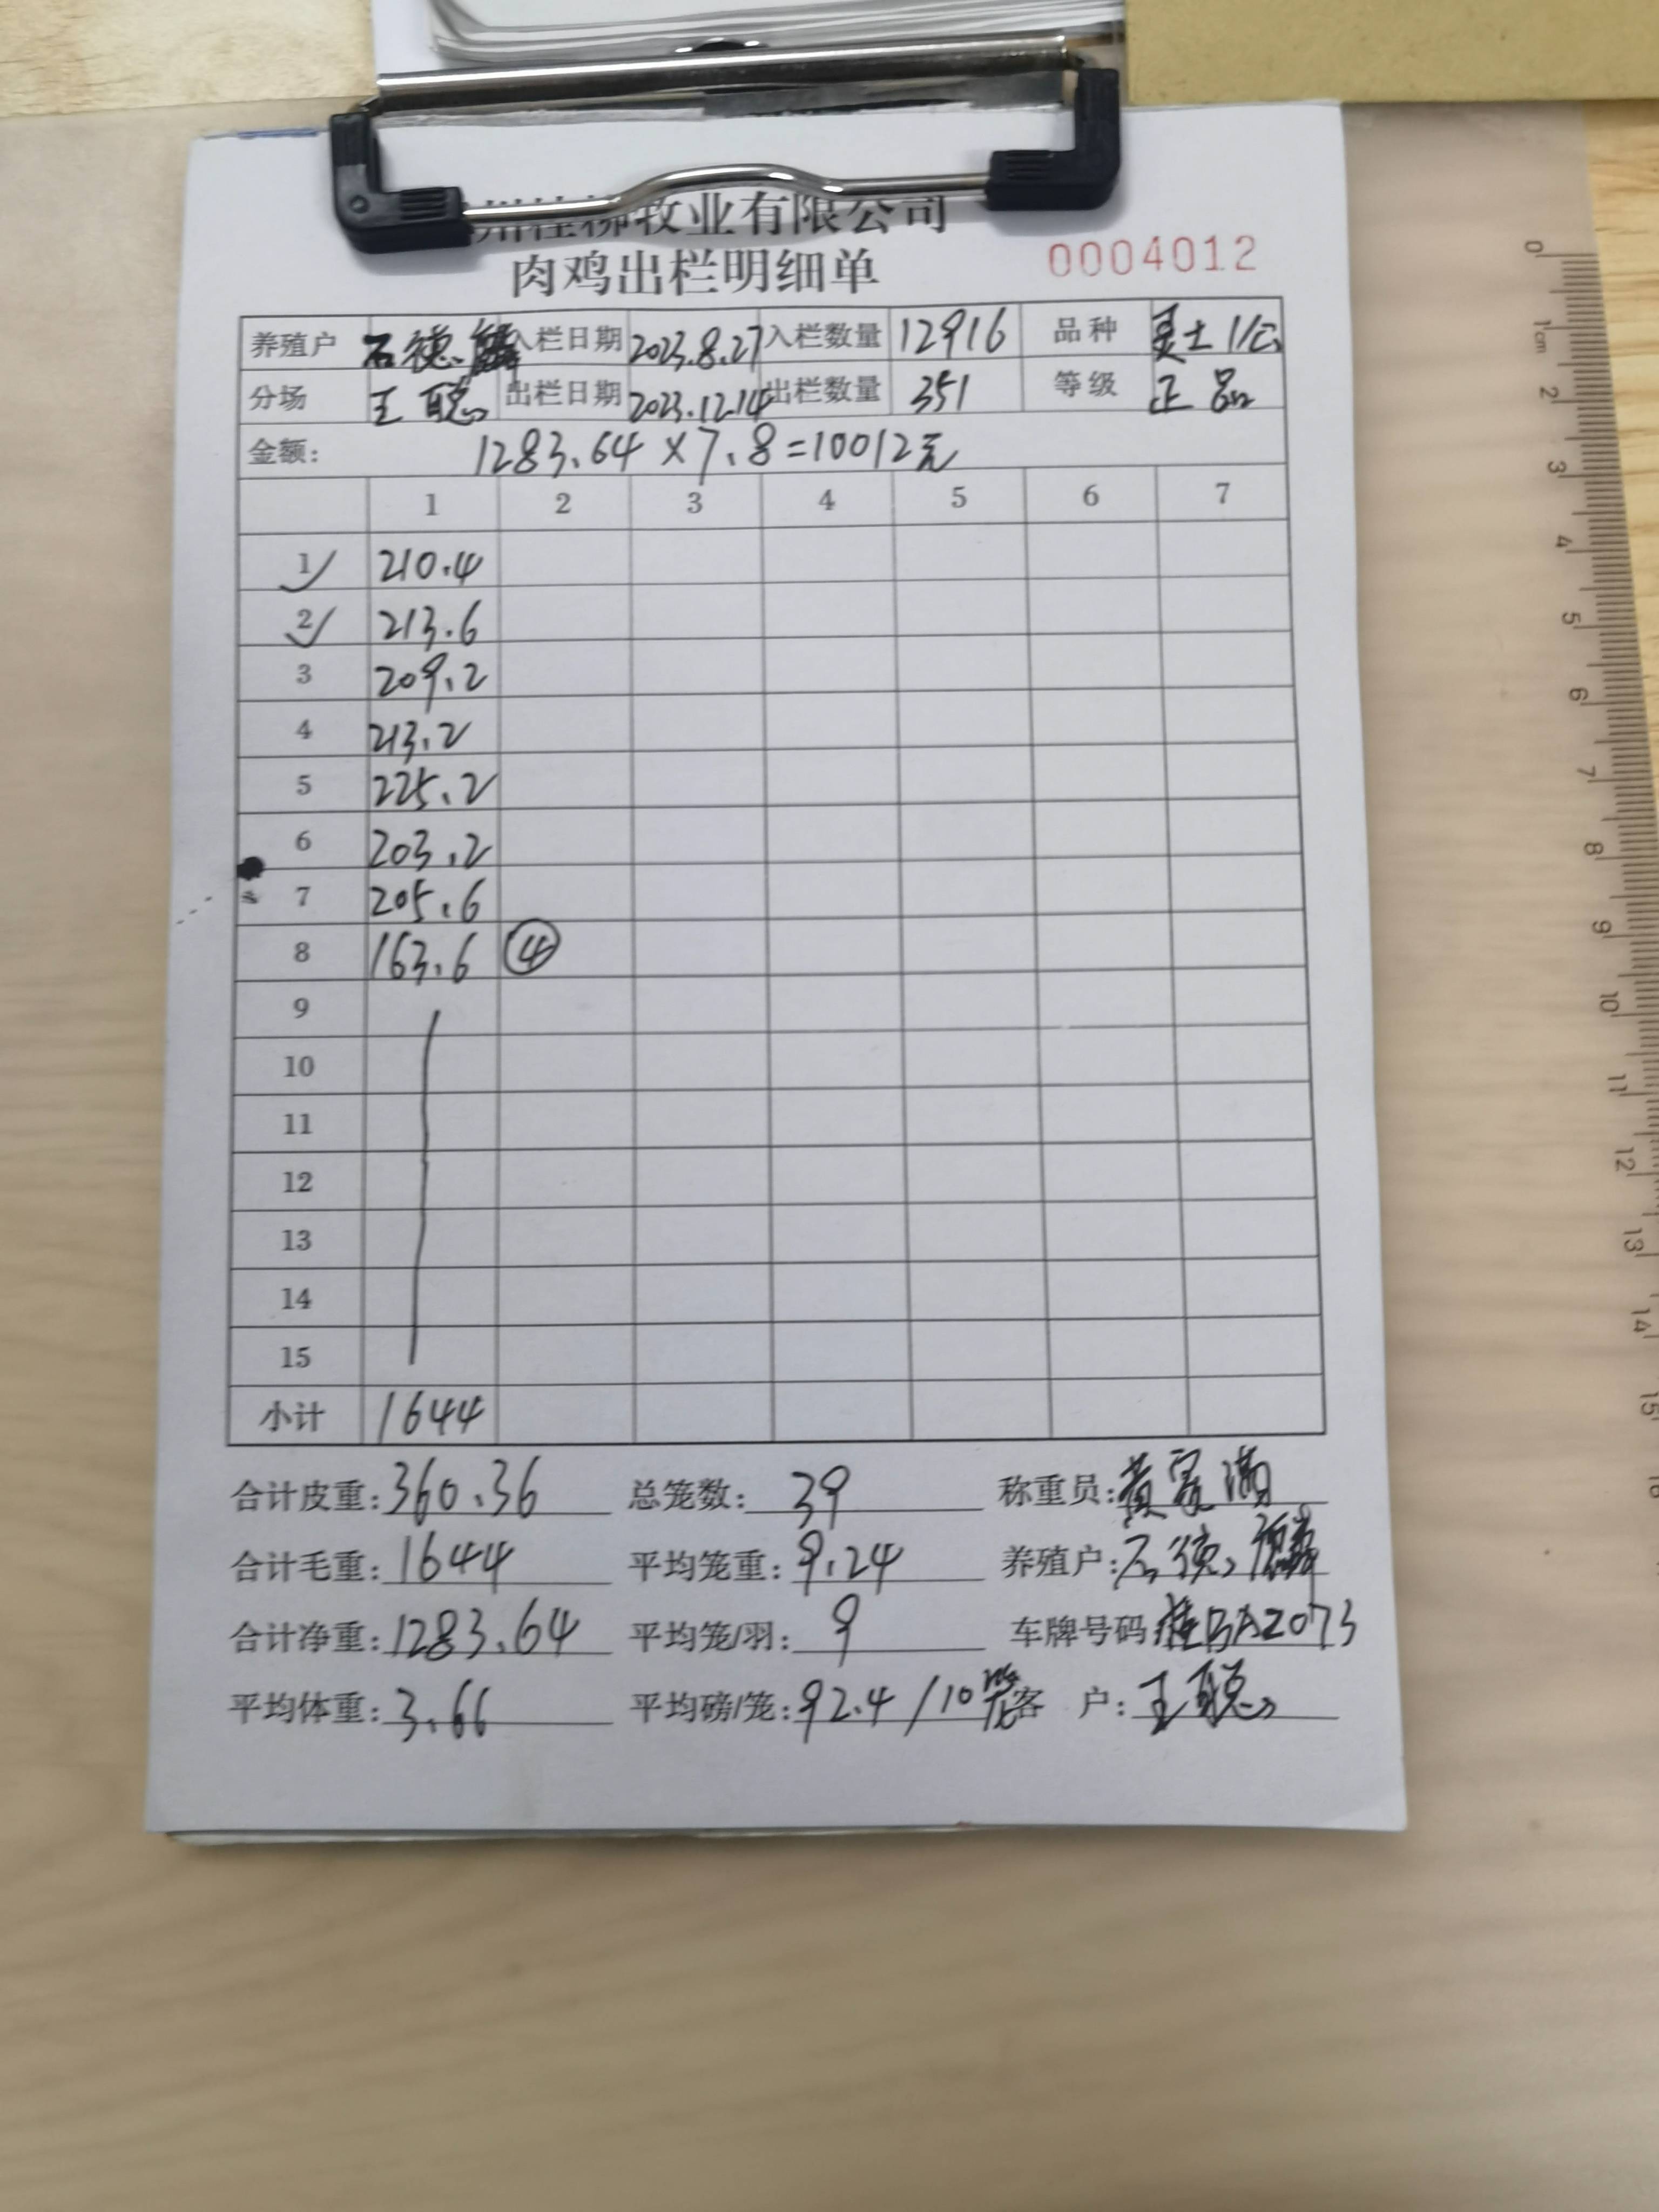 州桂柳牧业有限公司
肉鸡出栏明细单
0004012
养殖户 石德 入栏日期 2023.8.27 入栏数量 12916 品种 1/公
分场 王聪 出栏日期 2023.12.14 出栏数量 351 等级 正品
金额: 1283.64×7.8=10012元
1 2 3 4 5 6 7
1 210.4
2 213.6
3 209.2
4 213.2
5 225.2
6 203.2
7 205.6
8 163.6 ④
9
10
11
12
13
14
15
小计 1644
合计皮重: 360.36 总笼数: 39 称重员: 黄 满
合计毛重: 1644 平均笼重: 9.24 养殖户: 石德
合计净重: 1283.64 平均笼/羽: 9 车牌号码: 桂BA2073
平均体重: 3.66 平均磅/笼: 92.4/10笼 客户: 王聪
0 1cm 2 3 4 5 6 7 8 9 10 11 12 13 14 15 16